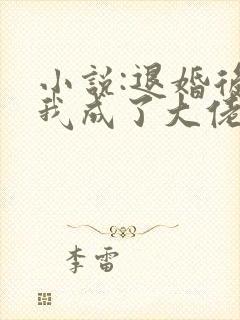 小说:退婚後
我成了大佬
李雷